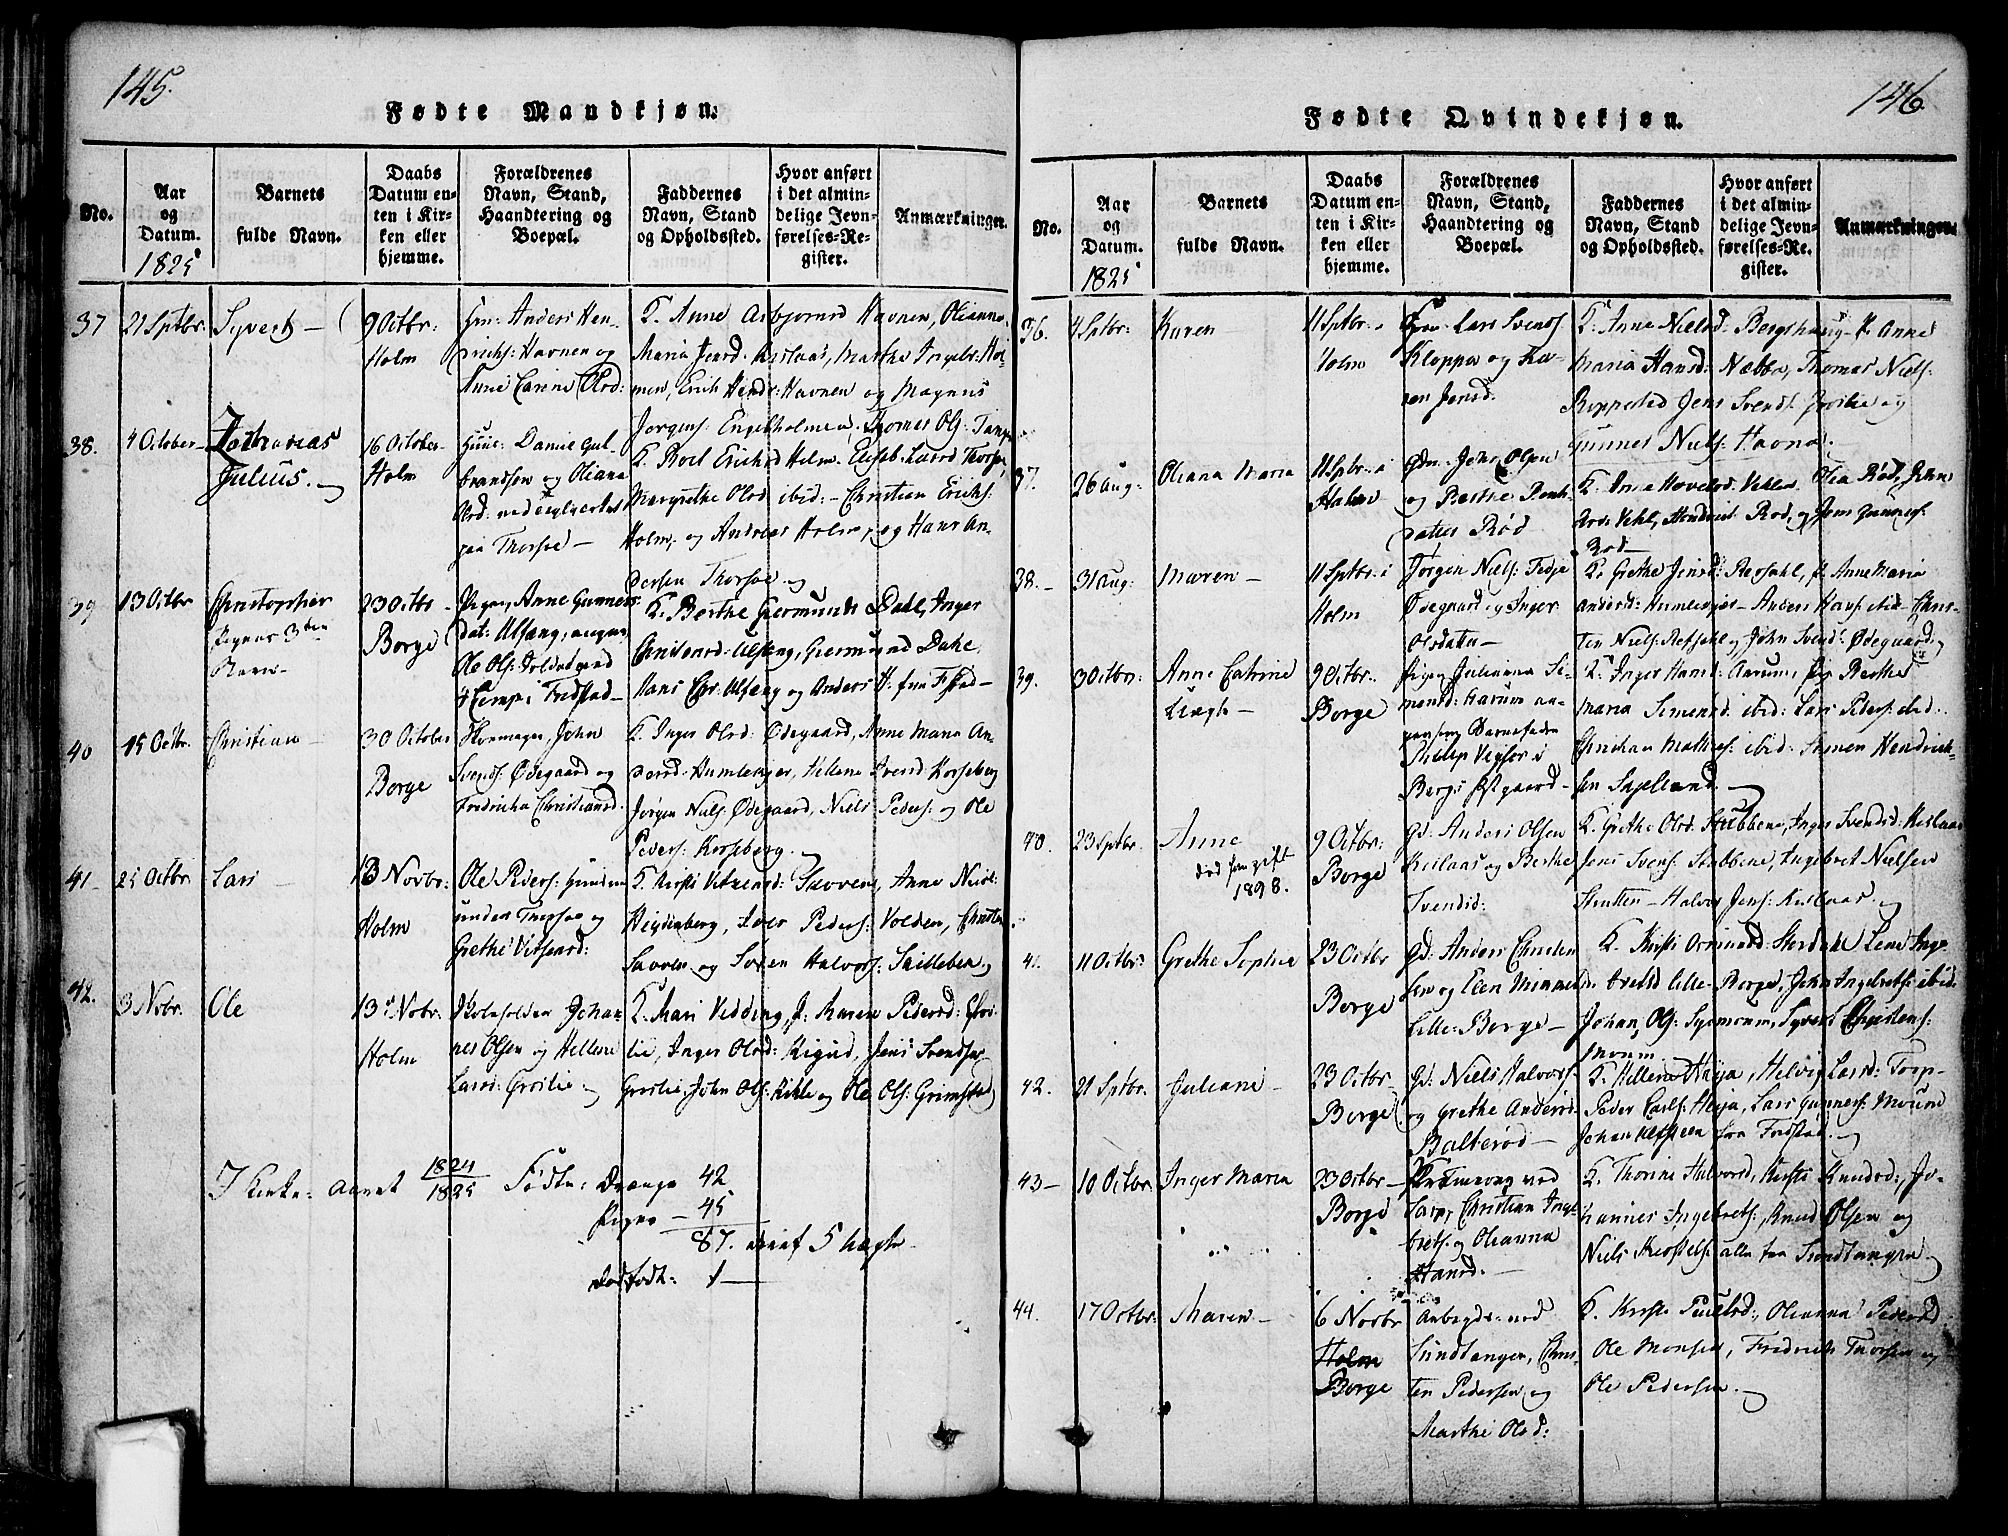 145.
Fødte Mandkjøn.
No.
Aar og Datum.
1825
Barnets fulde Navn.
Daabs Datum enten i Kirken eller hjemme.
Forældrenes Navn, Stand, Haandtering og Boepæl.
Faddernes Navn, Stand og Opholdssted.
Hvor anført i det almindelige Jevnførelses-Register.
Anmærkninger.
37
21 Sptbr:
Syvert –
9 Octbr:
Holm
Anders Hen-
richs: Havnen og
Anne Carine Olsd:
F. Anne Asbjørnsd Havnen, Olianne
Maria Jensd. Kislaas, Marthe Ingebr: Hol-
men, Erich Hendr: Havnen og Magnus
Jørgens: Engelholmen, Thomes Ols:
38.
4 October
Zacharias
Julius.
16 October
Holm
Daniel Gul-
brandsen og Oliana
Olsd:
paa Thorsøe –
F. Boel Erichsd Holm. Elisab: Larsd Thorsøe,
Margrethe Olsd ibid: – Christian Erichs:
Holm, og Andreas Holm, og Hans An-
dersen Thorsøe
39
13 Octbr
Christopher
Pigens 3die
Barn –
23 Octbr
Borge
Pigen, Anne Gunners
dat: Ulfæng, angav
Ole Ols: Soldat ved
4 Comp i Fridstad –
F. Berthe Giermunds Dahl, Inger
Christensd: Ulfæng, Giermund Dahl,
Hans Chr: Ulfæng og Anders H: fra F:stad –
40
15 Octbr.
Christian –
30 October
Borge
Skomager, John
Svends: Ødegaard og
Fredricha Christiansd.
F. Inger Olsd: Ødegaard, Anne Maria An-
dersd: Humlekjær, Hellene Iversd: Korseberg
Jørgen Niels: Ødegaard, Niels Peders: og Ole
Peders: Korseberg.
41 –
25 Octbr
Lars –
13 Novbr:
Holm
Ole Peders:
under Thorsøe og
Grethe
F. Kirsti Sævven, Anne Niels:
Heydenberg, Iver Peders: Volden, Christen
Sævven og Søren Halvors:
42.
3 Nobr.
Ole
13 Nobr.
Holm
Skoleholder Johan-
nes Olsen og Hellene
Larsd: Groslie
F. Mari Vedding, P: Karen Pedersd: Gros-
lie, Inger Olsd: Jens Svends:
Groslie, John Ols: og Ole Ols: Grimstad
I Kirke-aaret 1824/1825 Fødte: Drænge 42
Pigen – 45
87. deraf 5 uægte
Dødfødte: 1 –
146
Fødte Qvindekjøn.
No.
Aar og Datum.
1825
Barnets fulde Navn.
Daabs Datum enten i Kirken eller hjemme.
Forældrenes Navn, Stand, Haandtering og Boepæl.
Faddernes Navn, Stand og Opholdssted.
Hvor anført i det almindelige Jevnførelses-Register.
Anmærkninger.
36.
4 Sptbr:
Karen –
11 Sptbr: i
Holm
Lars Svends
Kloppa og Ka-
ren Jensd.
F. Anne Nielsd. Bergshaug P: Anne
Maria Hansd: Næbba, Thomas Niels:
Roppestad Jens Svends. Groslie og
Gunner Niels: Havna.
37.
26 Aug:
Oliana Maria
11 Sptbr: i
Holm
Jens Olsen
og Berthe
datter Rød
F. Anne
Hendrich Rød, og Jens
Rød –
38. –
31 Aug:
Maren –
11 Sptbr: i
Holm
Jørgen Niels:
Ødegaard og Inger
Olsdatter –
F. Grethe Jensd: Refsahl, P. Anne Maria
Andersd: Humlekjær – Anders Hans: ibid – Chris-
ten Niels: Refsahl og John Svends: Ødegaard
39.
3 Octbr:
Anne Catrine
Uægte –
9 Octbr:
Borge
Pigen Julianna Si-
mensd: Aarum an-
gav som Barnefader
Philip
Bergs Østgaard –
F. Inger Hansd: Aarum, Pig. Berthe
Maria Simensd: ibid: Lars Peders: ibid:
Christian Mathis: ibid: Simen Hendrich-
sen
40.
23 Sptbr
Anne
død som gift
1898.
9 Octbr:
Borge
gd: Anders Olsen
Kislaas og Berthe
Svendsd:
F. Grethe Olsd: Stubbene, Inger Svendsd: Kislaas
Jens Svens: Stubbene, Ingebret Nielsen
Halvor Jens: Kislaas.
41.
11 Octbr:
Grethe Sophia
23 Octbr
Borge
gd: Anders Christen
sen og Elen
Lille-Borge –
F. Kirsti Lene Inge
bretsd Lille-Borge, John Ingebrets: ibid.
Johan Ols: Syvert Christens:
42.
21 Sptbr:
Juliane –
23 Octbr
Borge
gd: Niels Halvors:
og Grethe Andersd.
Balterød –
F. Hellene Høya, Helvig Larsd: Torp –
Peder Carls: Høya, Lars Gunners: Moum
Johan fra Fridstad.
43 –
10 Octbr:
Inger Maria
23 Octbr –
Borge
ved
Christian Inge
brets. og Olianna
Hansd: –
F. Thorine Halvorsd, Kirsti Knudsd: Jo-
hannes Ingebrets:, Knud Olsen og
Niels alle fra Sundtangen
44.
17 Octbr:
Maren –
6 Novbr
Holm
Borge
Arbeyds: ved
Sundtangen, Chris-
ten Pedersen og
Marthe Olsd:
F. Kirsti Olianna Pedersd
Ole Monsen, Fredrich Thorsen og
Ole Pedersen.